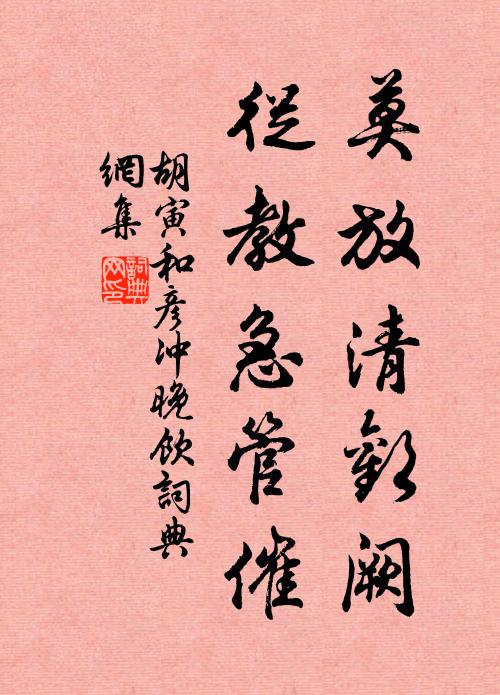 莫放清歡闕
從教急管催
胡寅和彥沖晚飲詞典
網集
詞典網印